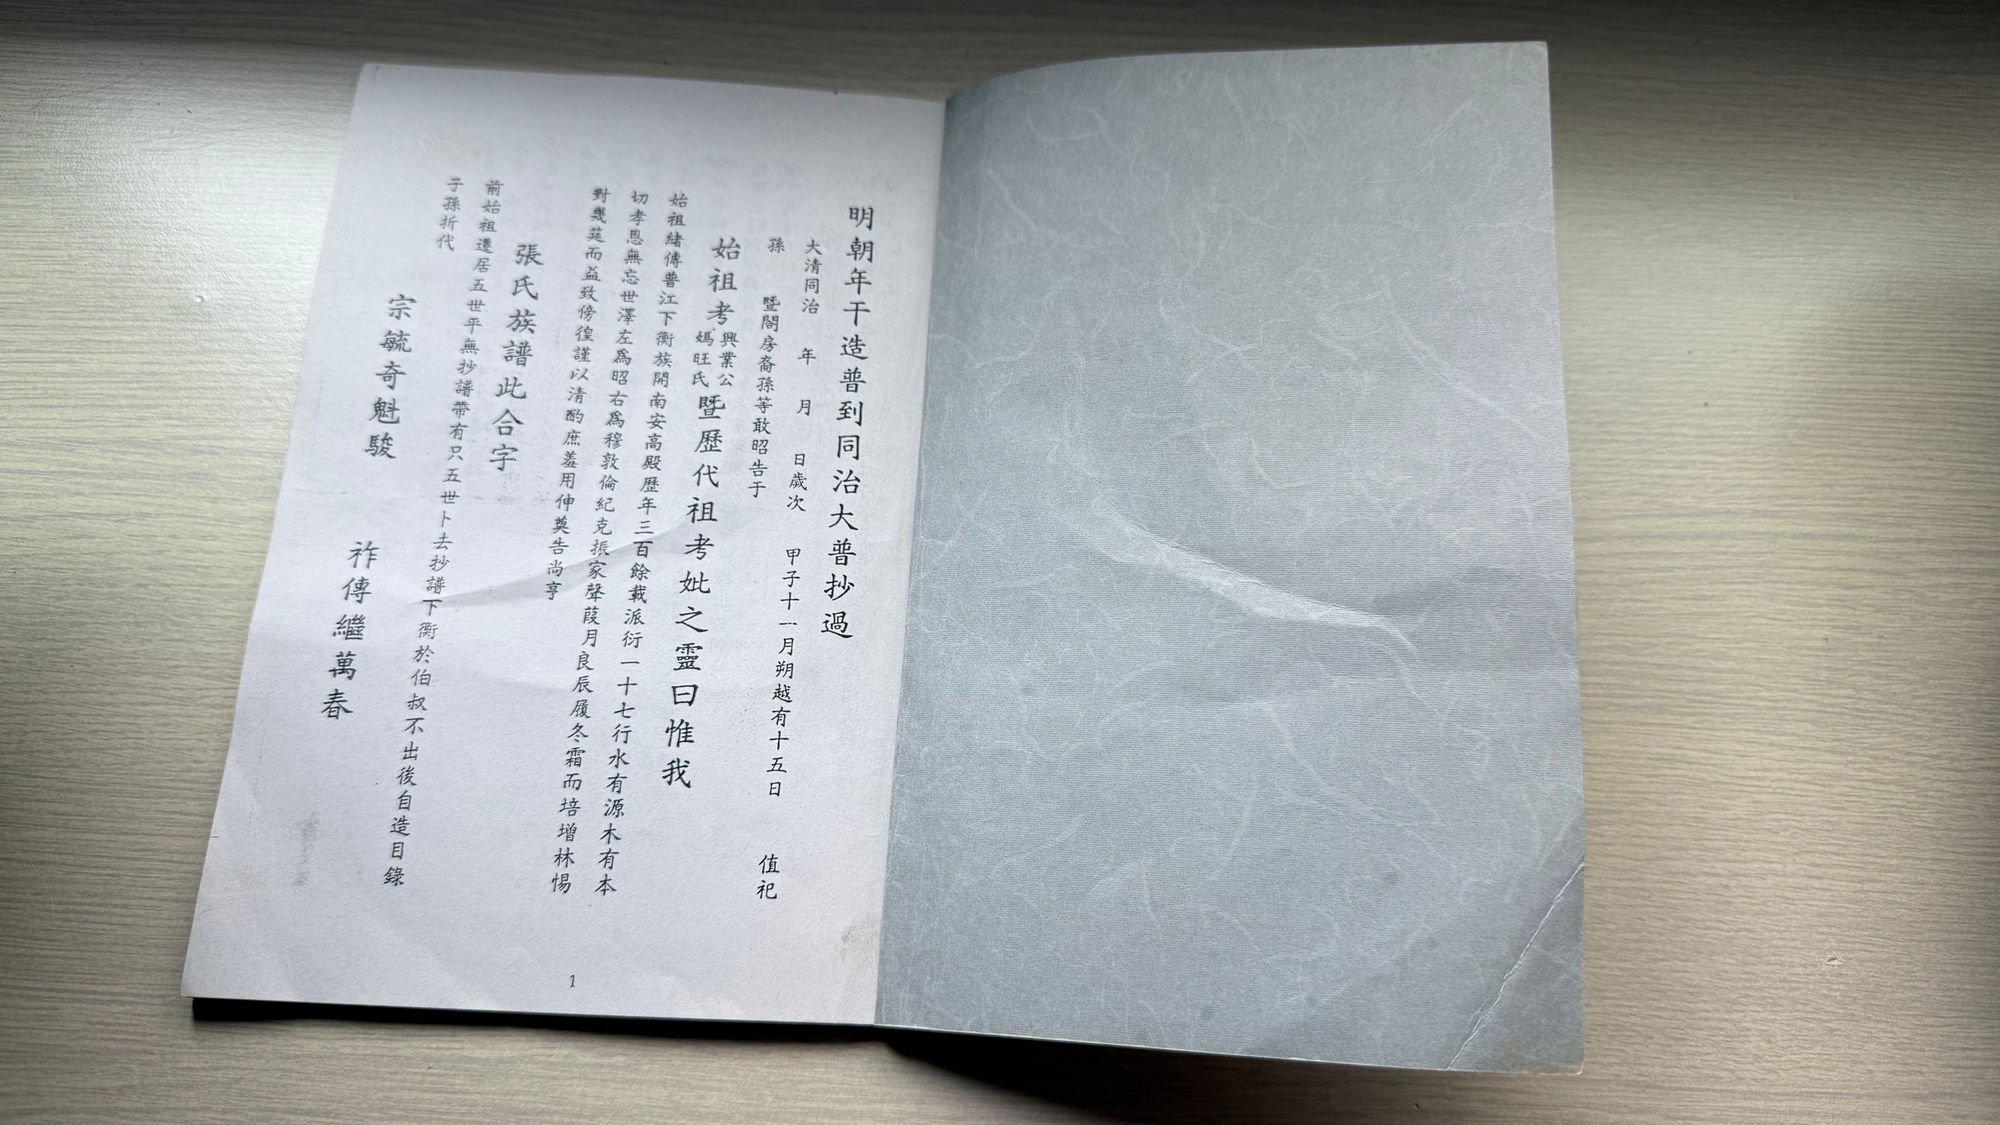 明朝年干造普到同治大普抄過
大清同治 年 月 日歲次 甲子十一月朔越有十五日 值祀
孫 暨閤房裔孫等敢昭告于
始祖考興業公媽旺氏暨歷代祖考妣之靈曰惟我
始祖緒傳普江下衡族開南安高殿歷年三百餘載派衍一十七行水有源木有本
切孝恩無忘世澤左爲昭右爲穆敦倫紀克振家聲葭月良辰履冬霜而培增林惕
對幾筵而益致傍徨謹以清酌庶羞用伸奠告尚亨
張氏族譜此合字
前始祖遷居五世平無抄譜帶有只五世卜去抄譜下衡於伯叔不出後自造目錄
子孫折代
宗毓奇魁駿 祚傳繼萬春
1